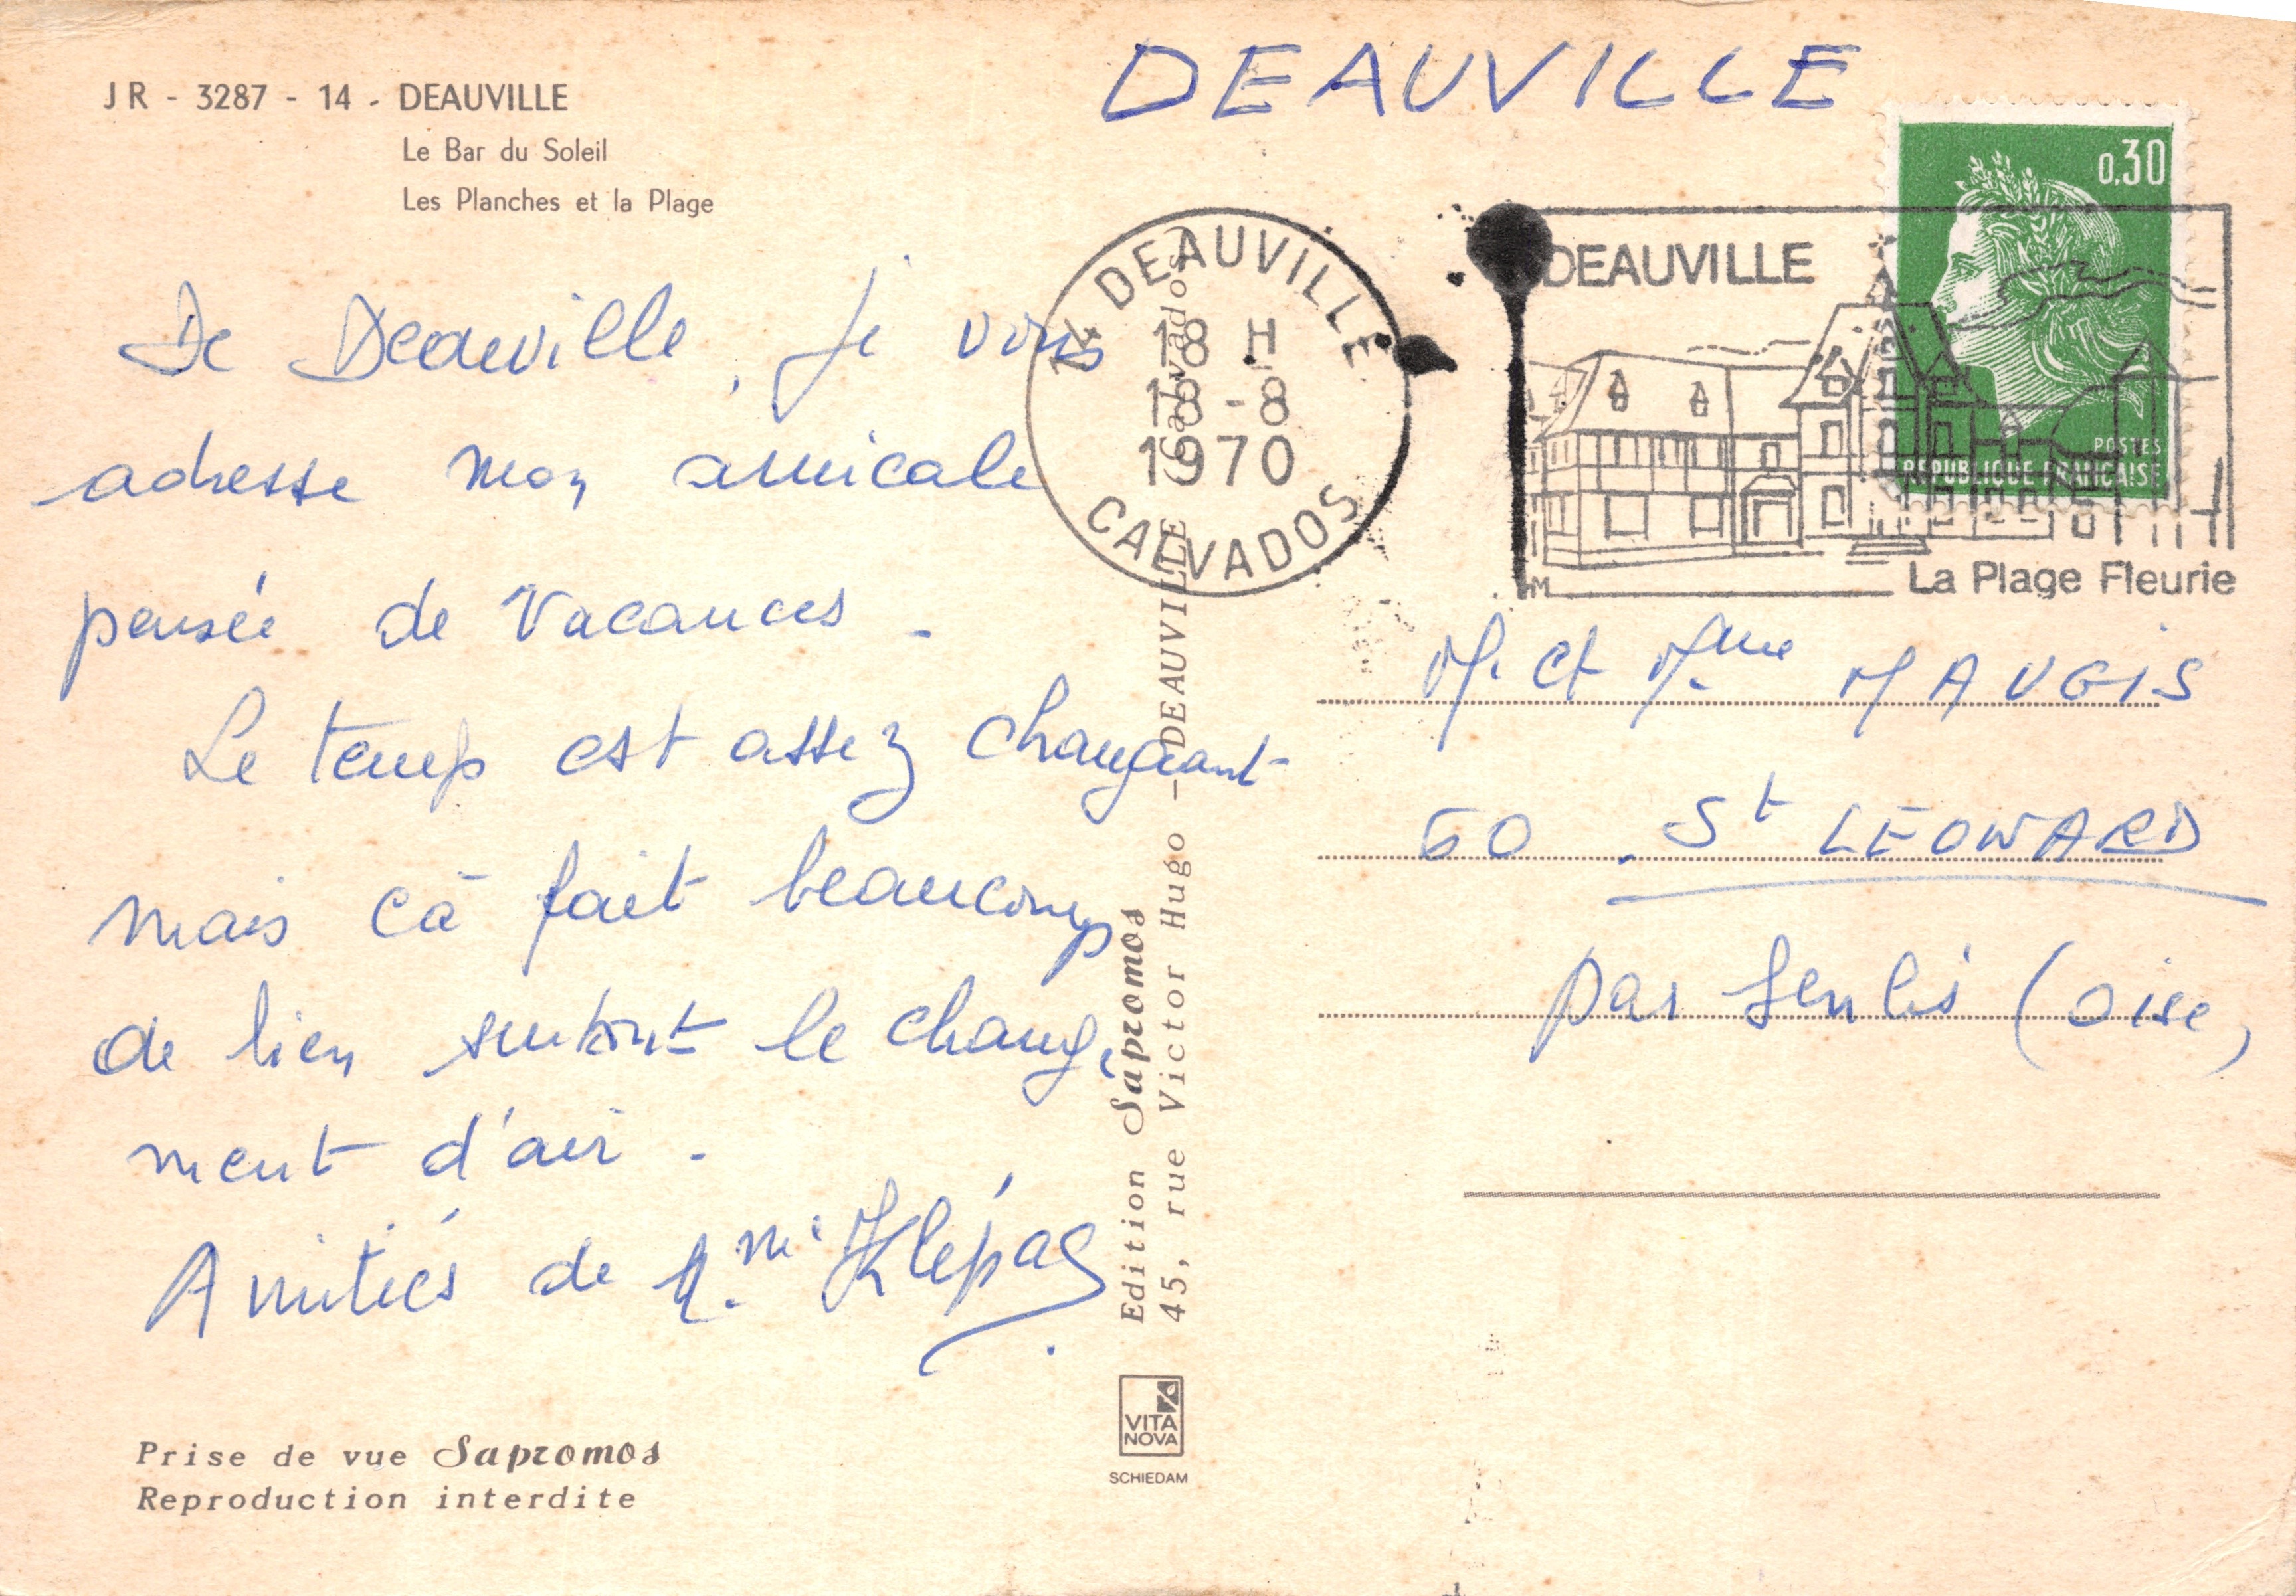 DEAUVILLE
JR - 3287 - 14 - DEAUVILLE
Le Bar du Soleil
Les Planches et la Plage
De Deauville, je vous
adresse mon amicale
pensée de Vacances.
Le temps est assez changeant
mais cà fait beaucoup
de bien surtout le change
ment d'air.
Amitiés de Mme Klépas
Prise de vue Sapromos
Reproduction interdite
Edition Sapromos
45, rue Victor Hugo - DEAUVILLE (Calvados)
VITA
NOVA
SCHIEDAM
14 DEAUVILLE
18 H
18-8
1970
CALVADOS
DEAUVILLE
La Plage Fleurie
0,30
POSTES
REPUBLIQUE FRANÇAISE
M. et Mme MAUGIS
60. St LÉONARD
par Senlis (Oise)